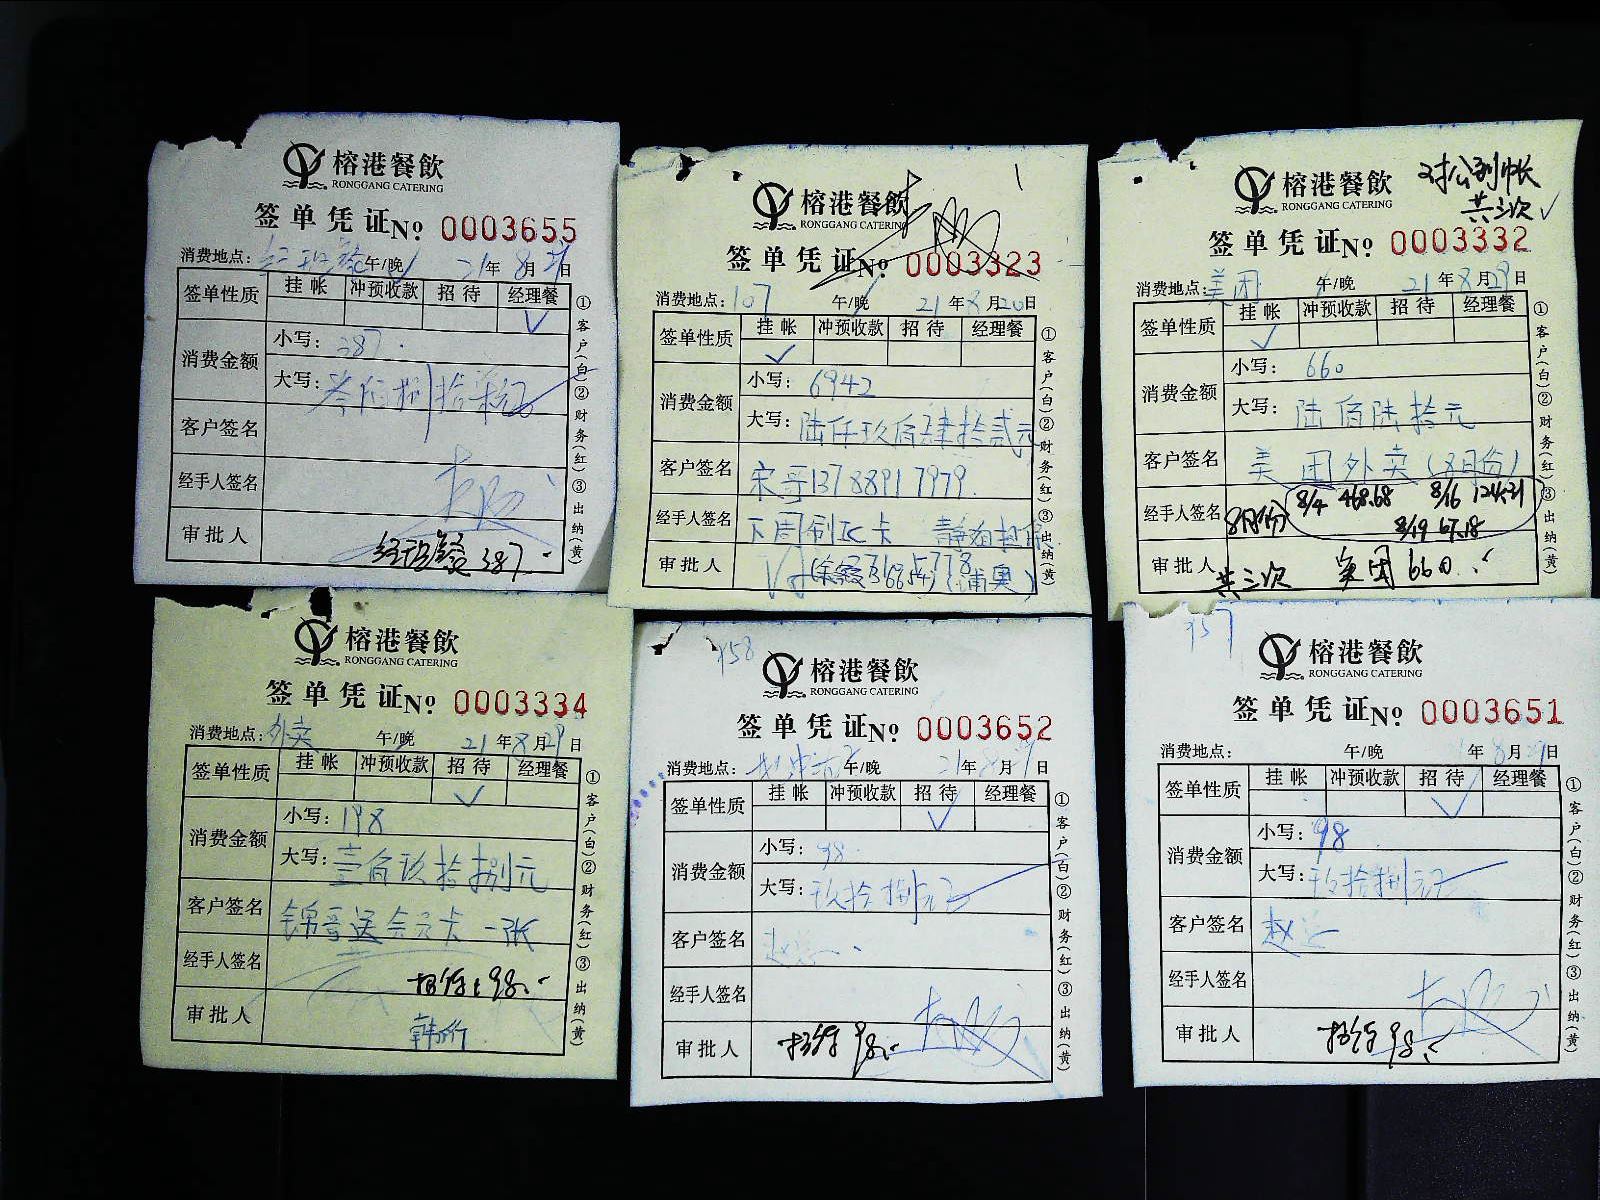 榕港餐飲
RONGGANG CATERING
签单凭证No 0003655
消费地点: 午/晚 21年8月29日
签单性质 挂帐 冲预收款 招待 经理餐
✓
消费金额 小写: 387.
大写: 叁佰捌拾柒元
客户签名
经手人签名
审批人 387.
①客户(白)②财务(红)③出纳(黄)
榕港餐飲
RONGGANG CATERING
签单凭证No 0003323
消费地点: 107 午/晚 21年8月20日
签单性质 挂帐 冲预收款 招待 经理餐
✓
消费金额 小写: 6942
大写: 陆仟玖佰肆拾贰元
客户签名 宋哥13788917979.
经手人签名 下周刷卡
审批人
①客户(白)②财务(红)③出纳(黄)
对公到帐
共三次 ✓
榕港餐飲
RONGGANG CATERING
签单凭证No 0003332
消费地点: 美团 午/晚 21年8月29日
签单性质 挂帐 冲预收款 招待 经理餐
✓
消费金额 小写: 660
大写: 陆佰陆拾元
客户签名 美团外卖(8月份)
经手人签名 8月份 8/4 468.68 8/16 124.21
8/19 67.18
审批人 共三次 美团 660.
①客户(白)②财务(红)③出纳(黄)
榕港餐飲
RONGGANG CATERING
签单凭证No 0003334
消费地点: 外卖 午/晚 21年8月29日
签单性质 挂帐 冲预收款 招待 经理餐
✓
消费金额 小写: 198
大写: 壹佰玖拾捌元
客户签名 锦哥送会员卡一张
经手人签名 招待198.
审批人
①客户(白)②财务(红)③出纳(黄)
榕港餐飲
RONGGANG CATERING
签单凭证No 0003652
消费地点: 午/晚 21年8月29日
签单性质 挂帐 冲预收款 招待 经理餐
✓
消费金额 小写: 98.
大写: 玖拾捌元
客户签名
经手人签名
审批人 招待 98.
①客户(白)②财务(红)③出纳(黄)
榕港餐飲
RONGGANG CATERING
签单凭证No 0003651
消费地点: 午/晚 年8月29日
签单性质 挂帐 冲预收款 招待 经理餐
✓
消费金额 小写: 98
大写: 玖拾捌元
客户签名
经手人签名
审批人 招待 98.
①客户(白)②财务(红)③出纳(黄)